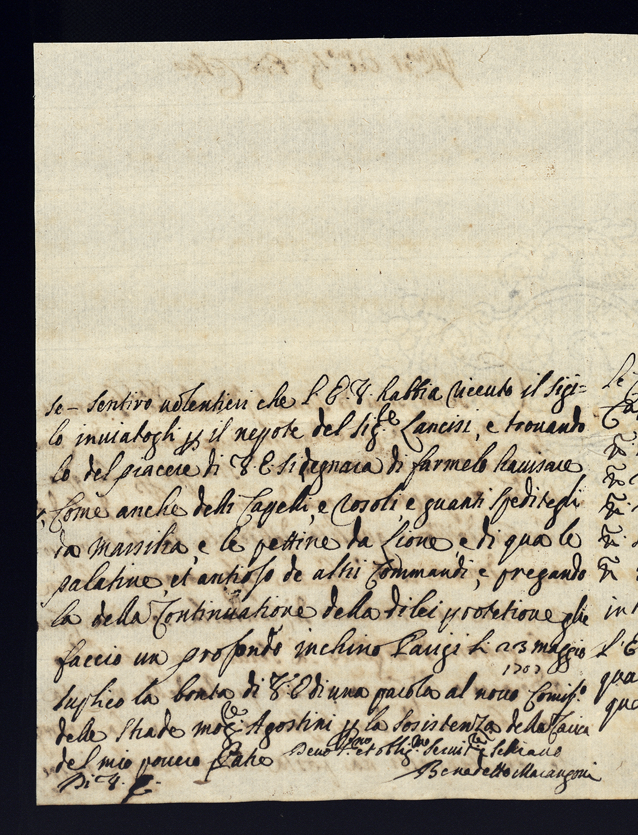 se - sentiro volentieri che l'E.V. habbia riceuto il sigi=
lo inviatogli p il nepote del Sig.re Lancisi, e trovando
lo del piacere di V.E. si degnara di farmelo havisare
Come anche delli Capelli, e rosoli e guanti speditegli
da Marsilia, e le pettine da Lione, e di qua le
palatine, et antioso de altri Commandi, e pregando
la della Continuatione della di lei protetione gli
faccio un profondo inchino Parigi li 23 maggio
1707
Suplico la bonta di V.E. di una parola al novo Comiss.o
delle Strade Agostini p la Sosistenza della Carica
del mio povero Padre
Devo.mo et oblig.mo Servit.re
Di V.E. Benedetto Marangoni